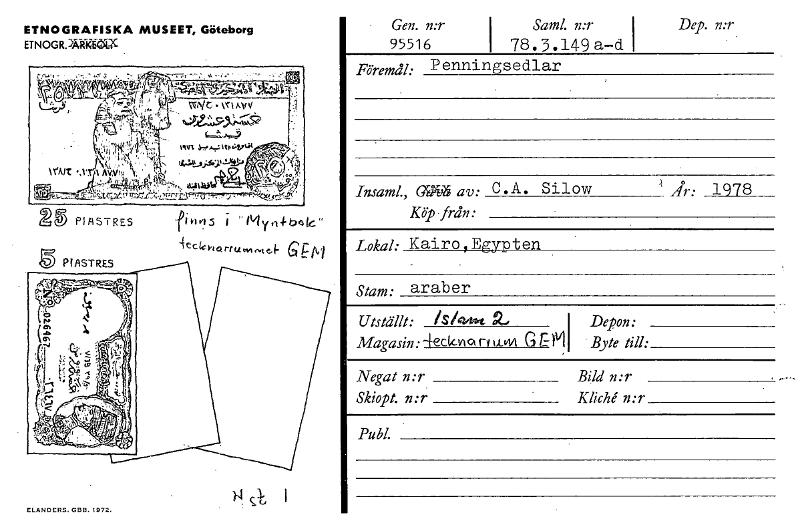 ETNOGRAFISKA MUSEET, Göteborg
ETNOGR. ARKEOL.
25 PIASTRES
finns i "Myntbok"
tecknarrummet GEM
5 PIASTRES
No 026467
ELANDERS. GBB. 1972.
Gen. n:r Saml. n:r Dep. n:r
95516 78.3.149 a-d
Föremål: Penningsedlar
Insaml., Gåva av: C.A. Silow År: 1978
Köp från:
Lokal: Kairo,Egypten
Stam: araber
Utställt: Islam 2 Depon:
Magasin: tecknarium GEM Byte till:
Negat n:r Bild n:r
Skiopt. n:r Kliché n:r
Publ.